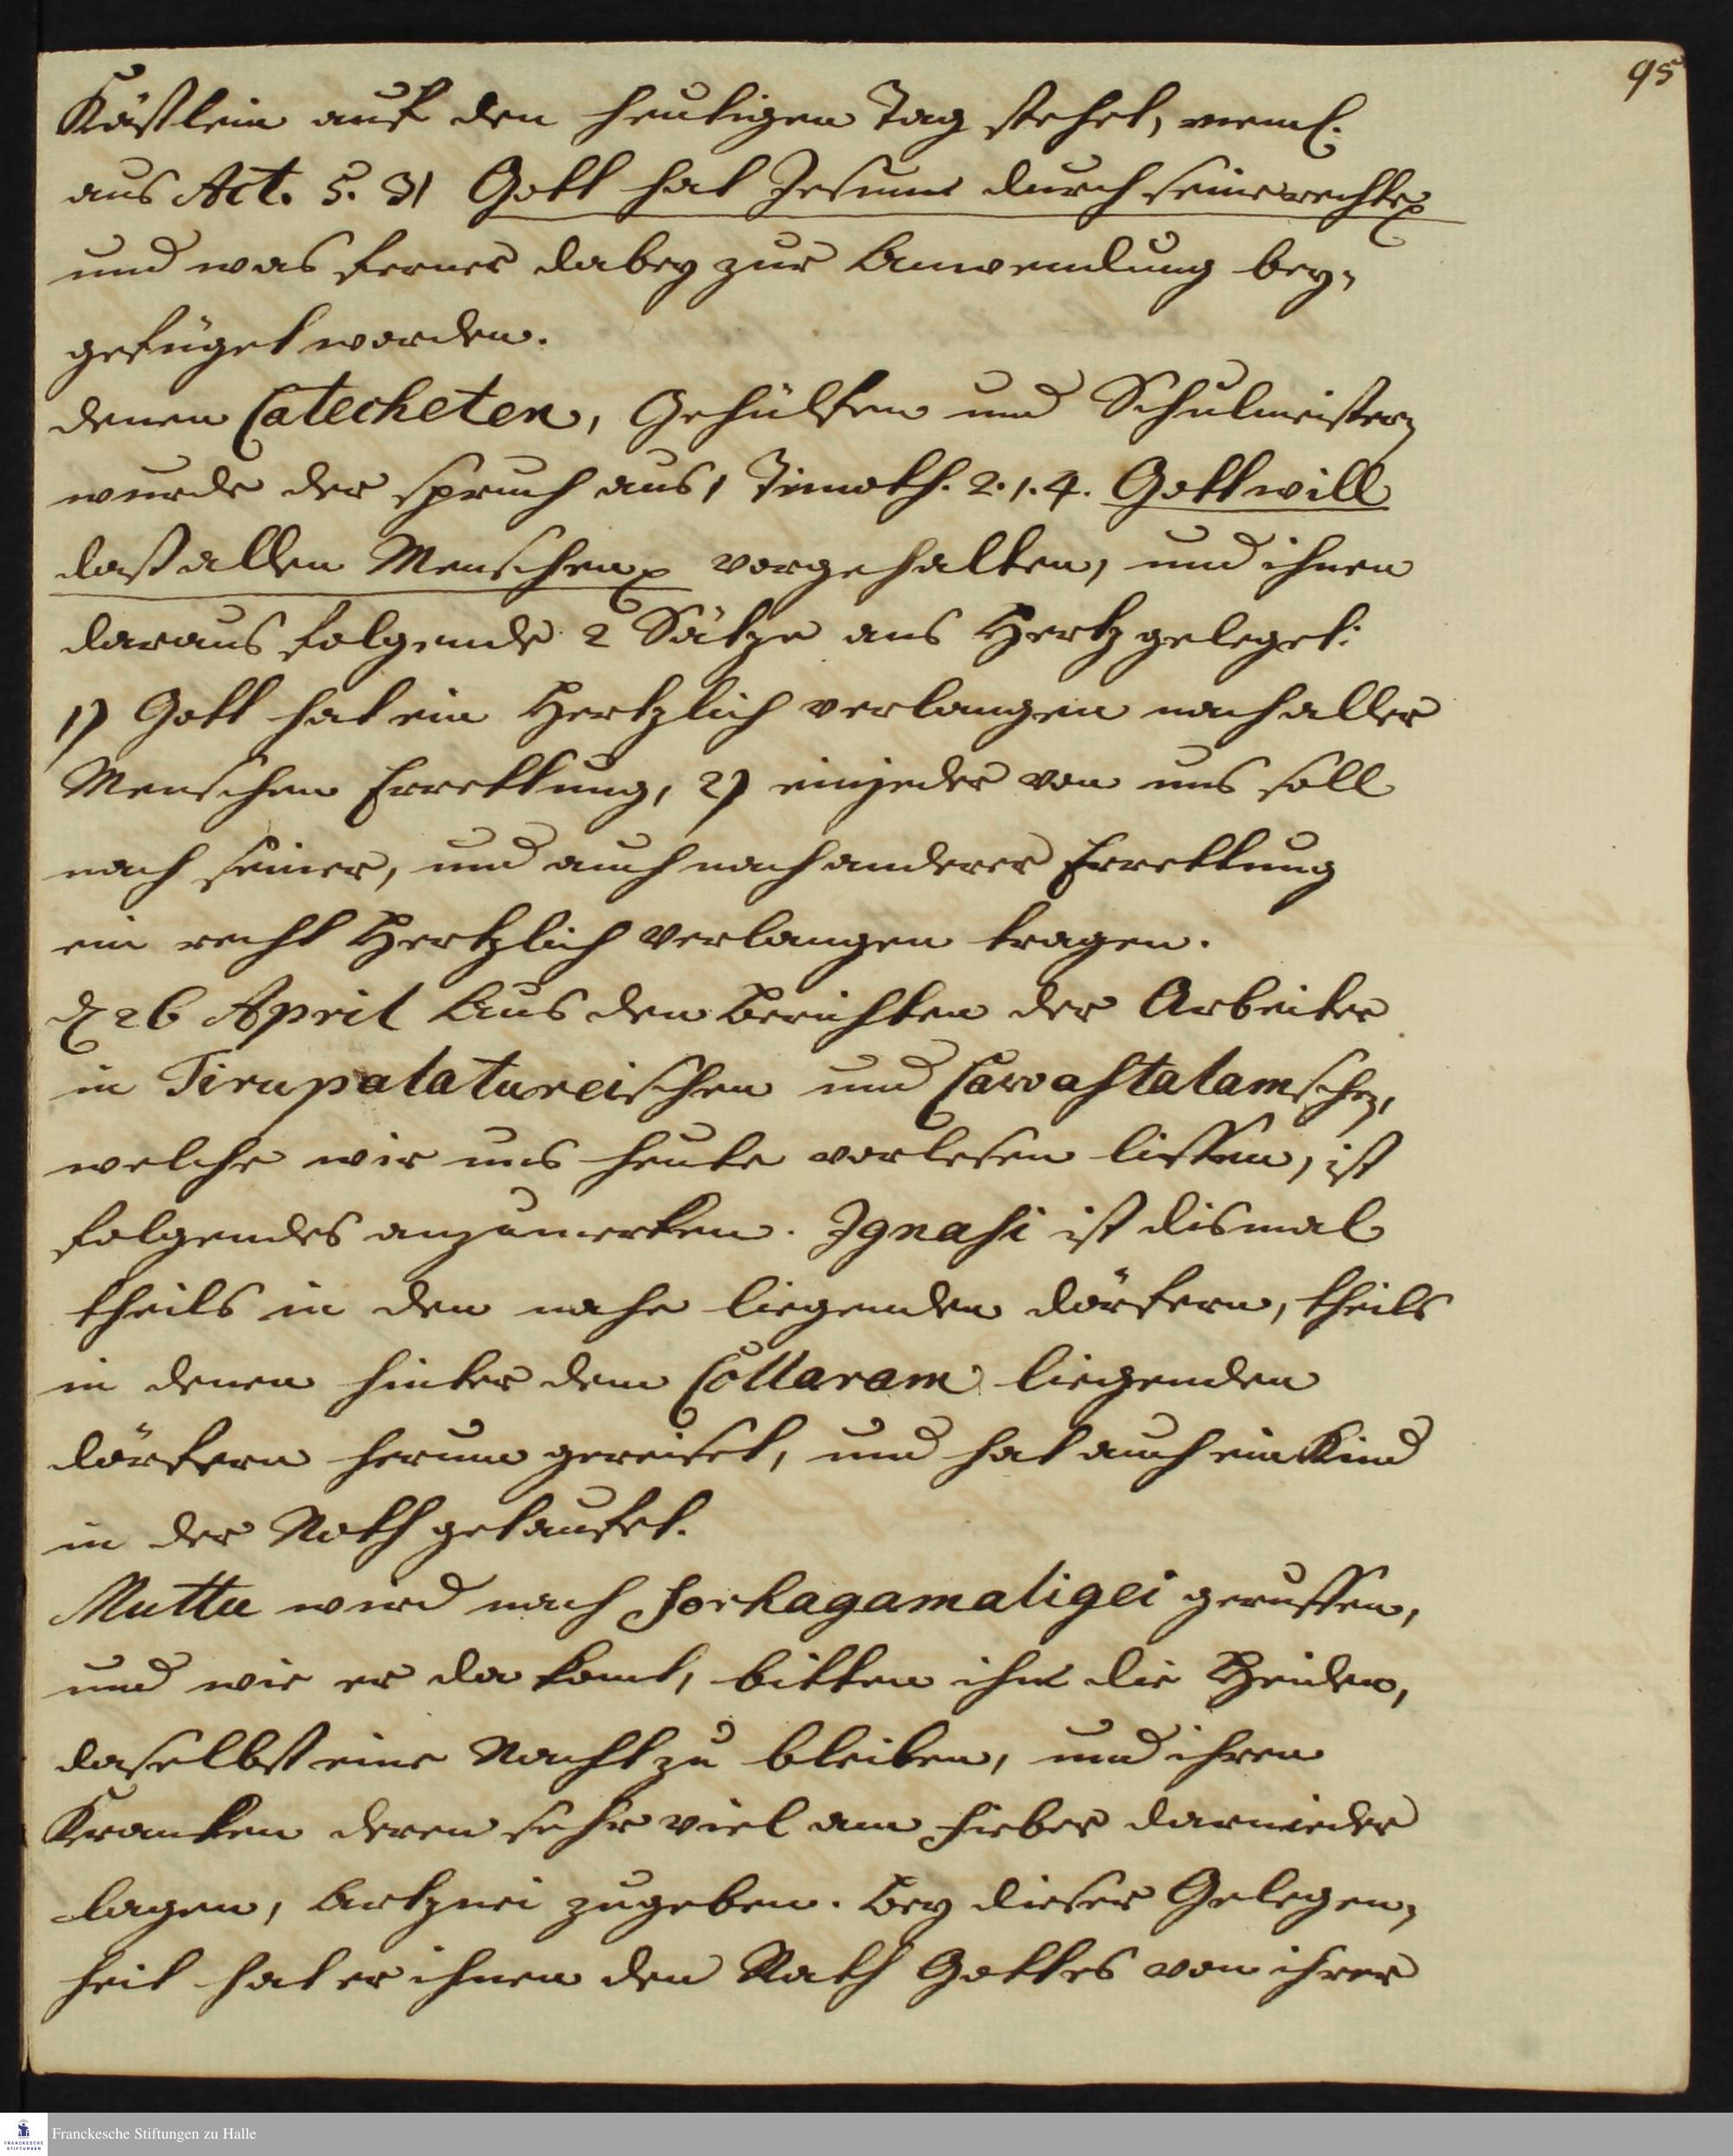 95
Kästlein auf den heutigen Tag stehet, neml.
aus Act. 5. 31 Gott hat Jesum durch seine rechte p
und was ferner dabey zur Anwendung bey-
gefüget worden.
denen Catecheten, Gehülfen und Schulmeistern
wurde der spruch aus 1 Timoth. 2. 1. 4. Gott will
daß allen Menschen p vorgehalten, und ihnen
daraus folgende 2 Sätze ans Hertz geleget:
1) Gott hat ein Hertzlich verlangen nach aller
Menschen Errettung, 2) ein jeder von uns soll
nach seiner, und auch nach anderer Errettung
ein recht Hertzlich verlangen tragen.
d 26 April Aus den Berichten der Arbeiter
in Tirupalatureischen und Carvastalamschen,
welche wir uns heute vorlesen liessen, ist
folgendes anzumerken. Ignasi ist dismal
theils in den nahe liegenden dörfern, theils
in denen hinter dem Collaram liegenden
dörfern herum gereiset, und hat auch ein Kind
in der Noth getaufet.
Muttu wird nach Sorkagamaligei geruffen,
und wie er da komt, bitten ihn die Heiden,
daselbst eine Nacht zu bleiben, und ihren
Krancken deren sehr viel am Fieber darnieder
lagen, Artznei zugeben. Bey dieser Gelegen-
heit hat er ihnen den Rath Gottes von ihrer
Franckesche Stiftungen zu Halle
FRANCKESCHE
STIFTUNGEN